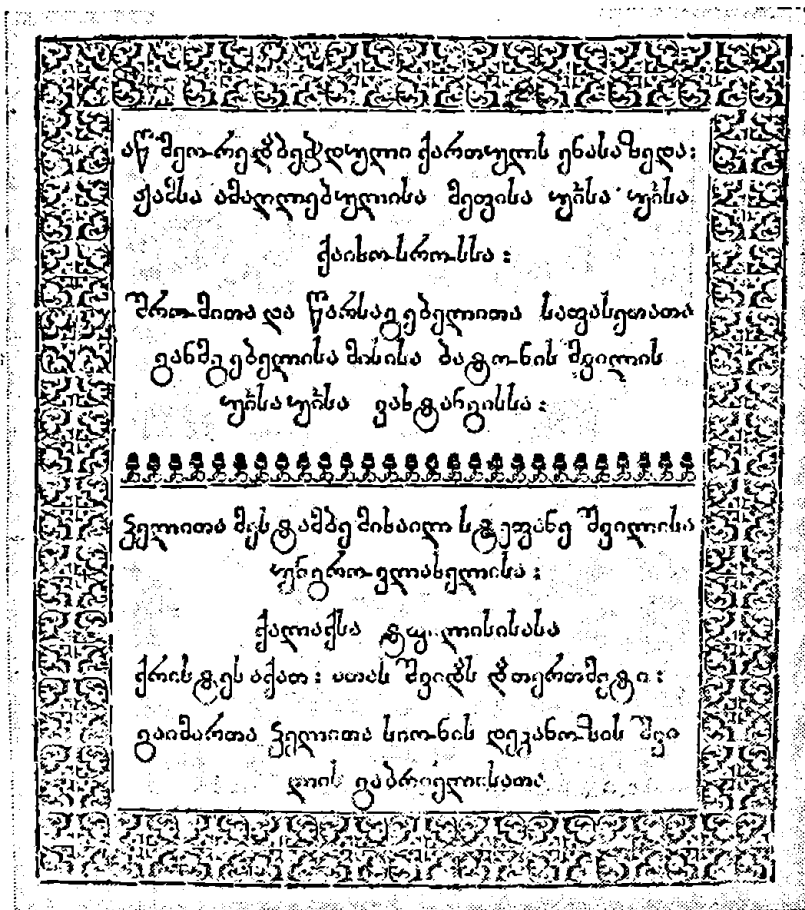 აწ მეორედ ბეჭდული ქართულს ენასა ზედა:
ჟამსა ამაღლებულისა მეფისა უ̃ისა უ̃ისა
ქაიხოსროსსა:
შრომითა და წარსაგებელითა საფასეთათა
განმგებელისა მისისა ბატონის შვილის
უ̃ისა უ̃ისა ვახტანგისსა:
ჴელითა მესტამბე მიხაილ სტეფანე შვილისა
უნგროვლახელისა:
ქალაქსა ტფილისისასა
ქრისტეს აქათ: ათას შვიდას თერთმეტი:
გაიმართა ჴელითა სიონის დეკანოზის შვი
ლის გაბრიელისათა